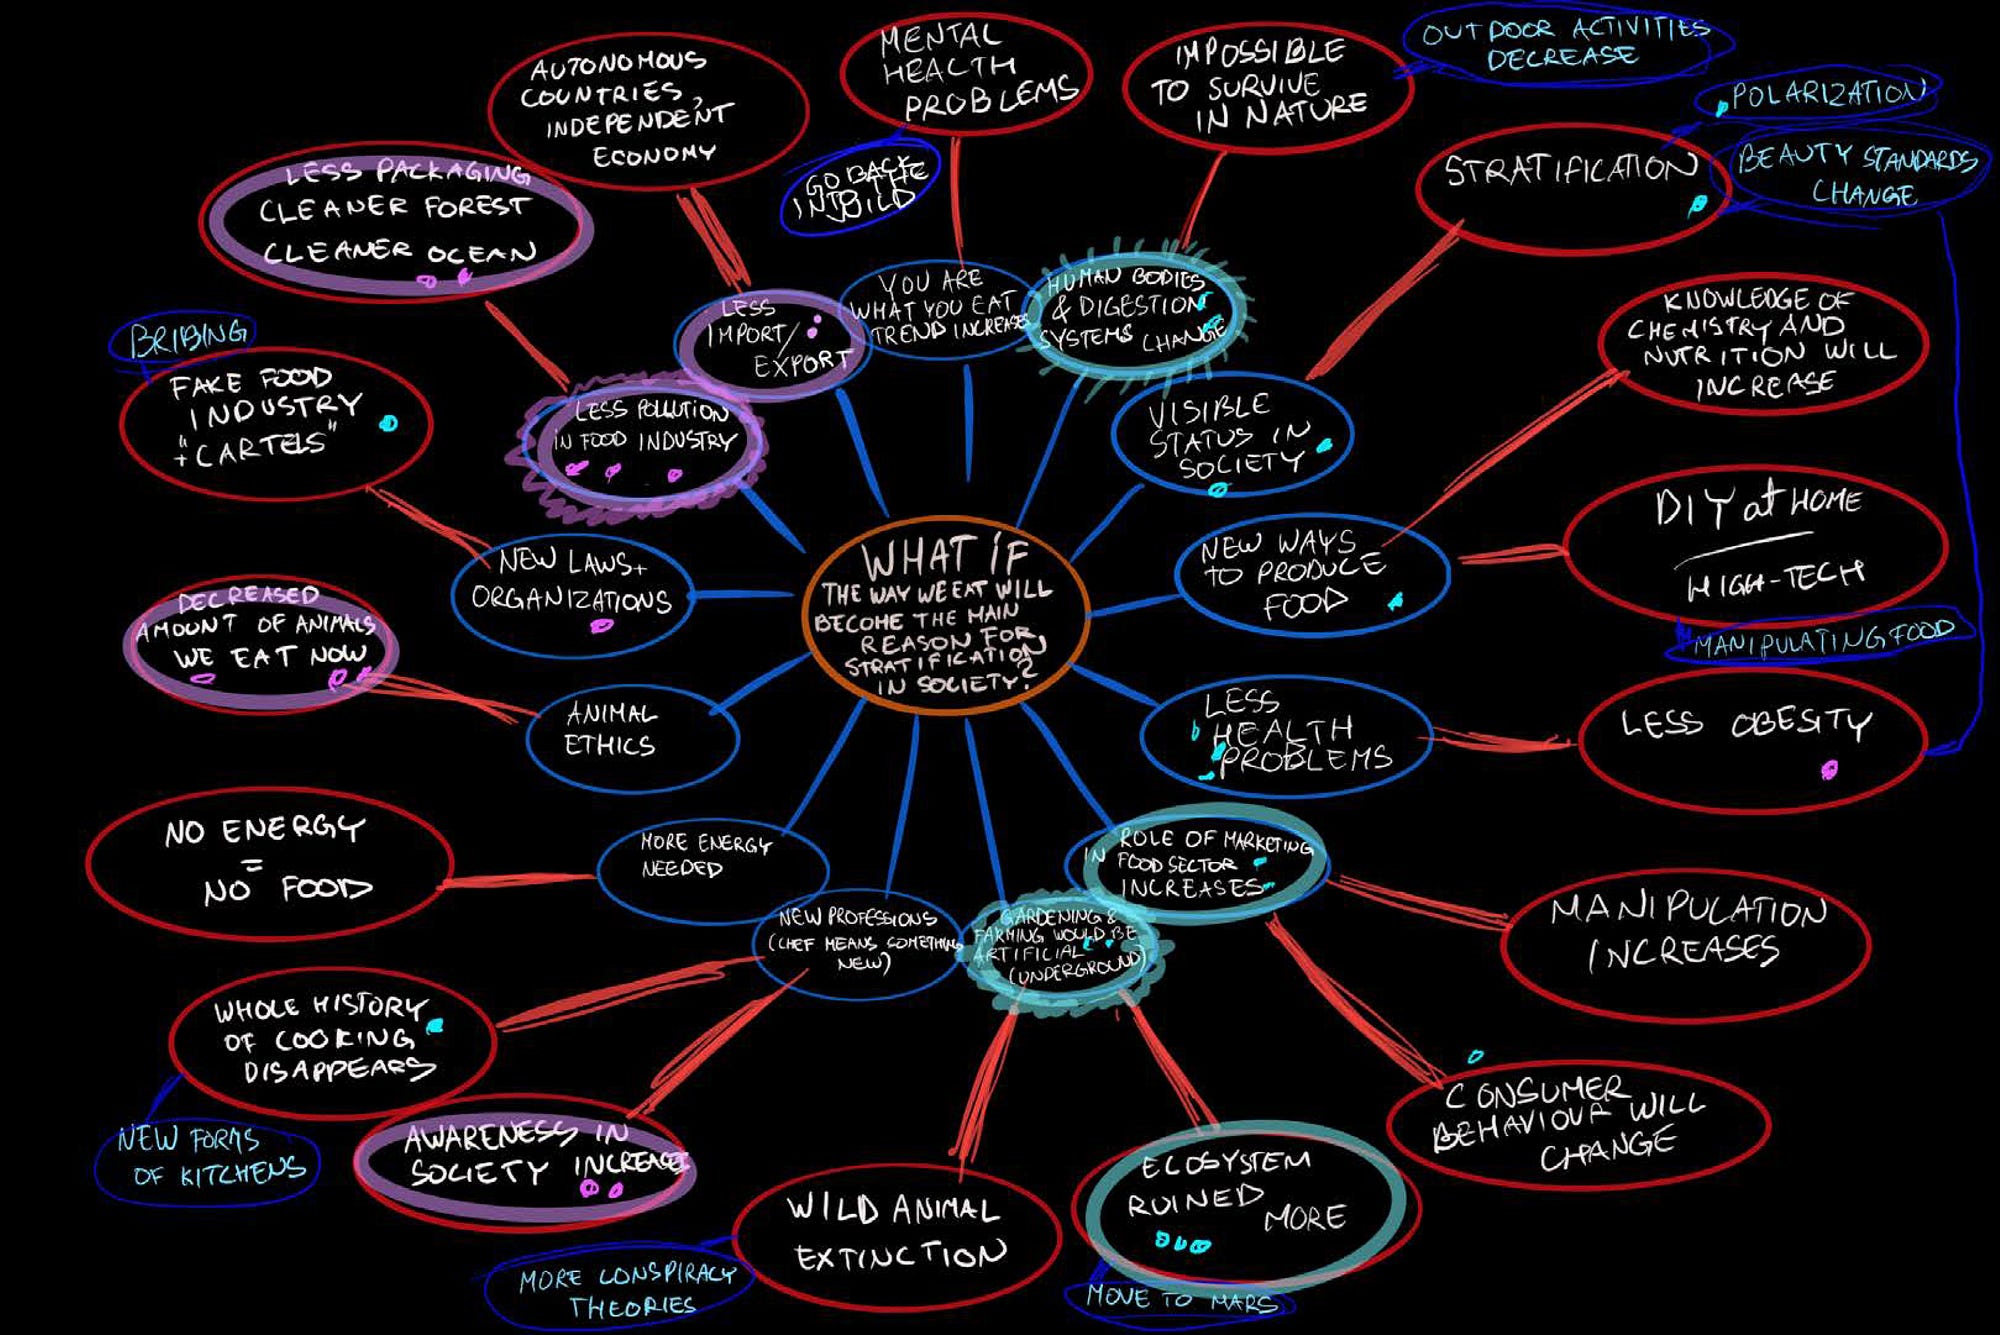 OUTDOOR ACTIVITIES
DECREASE
MENTAL
HEALTH
PROBLEMS
IMPOSSIBLE
TO SURVIVE
IN NATURE
AUTONOMOUS
COUNTRIES,
INDEPENDENT
ECONOMY
POLARIZATION
BEAUTY STANDARDS
CHANGE
STRATIFICATION
LESS PACKAGING
CLEANER FOREST
CLEANER OCEAN
GO BACK
INTO THE
WILD
YOU ARE
WHAT YOU EAT
TREND INCREASES
HUMAN BODIES
& DIGESTION
SYSTEMS CHANGE
LESS
IMPORT/
EXPORT
KNOWLEDGE OF
CHEMISTRY AND
NUTRITION WILL
INCREASE
BRIBING
FAKE FOOD
INDUSTRY
+ "CARTELS"
LESS POLLUTION
IN FOOD INDUSTRY
VISIBLE
STATUS IN
SOCIETY
DIY at HOME
HIGH-TECH
MANIPULATING FOOD
NEW LAWS+
ORGANIZATIONS
WHAT IF
THE WAY WE EAT WILL
BECOME THE MAIN
REASON FOR
STRATIFICATION
IN SOCIETY?
NEW WAYS
TO PRODUCE
FOOD
DECREASED
AMOUNT OF ANIMALS
WE EAT NOW
ANIMAL
ETHICS
LESS
HEALTH
PROBLEMS
LESS OBESITY
NO ENERGY
=
NO FOOD
MORE ENERGY
NEEDED
ROLE OF MARKETING
IN FOOD SECTOR
INCREASES
NEW PROFESSIONS
(CHEF MEANS SOMETHING
NEW)
GARDENING &
FARMING WOULD BE
ARTIFICIAL
(UNDERGROUND)
MANIPULATION
INCREASES
WHOLE HISTORY
OF COOKING
DISAPPEARS
NEW FORMS
OF KITCHENS
AWARENESS IN
SOCIETY INCREASES
CONSUMER
BEHAVIOUR WILL
CHANGE
WILD ANIMAL
EXTINCTION
MORE CONSPIRACY
THEORIES
ECOSYSTEM
RUINED MORE
MOVE TO MARS